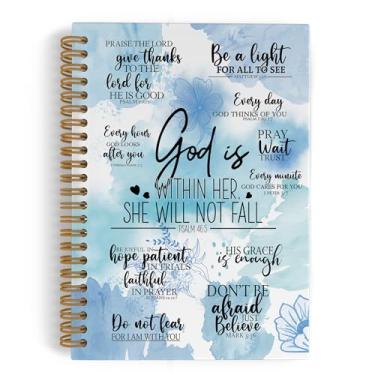 PRAISE THE LORD
give thanks
TO THE
lord for
HE IS GOOD
Be a light
FOR ALL TO SEE
Every day
GOD THINKS OF YOU
Every hour
GOD LOOKS
after you
God is
WITHIN HER,
SHE WILL NOT FALL
PSALM 46:5
PRAY
Wait
TRUST
Every minute
GOD CARES FOR YOU
BE JOYFUL IN
hope patient
IN TRIALS
faithful
IN PRAYER
HIS GRACE
is enough
DON'T BE
afraid
JUST
Believe
MARK 5:36
Do not fear
FOR I AM WITH YOU